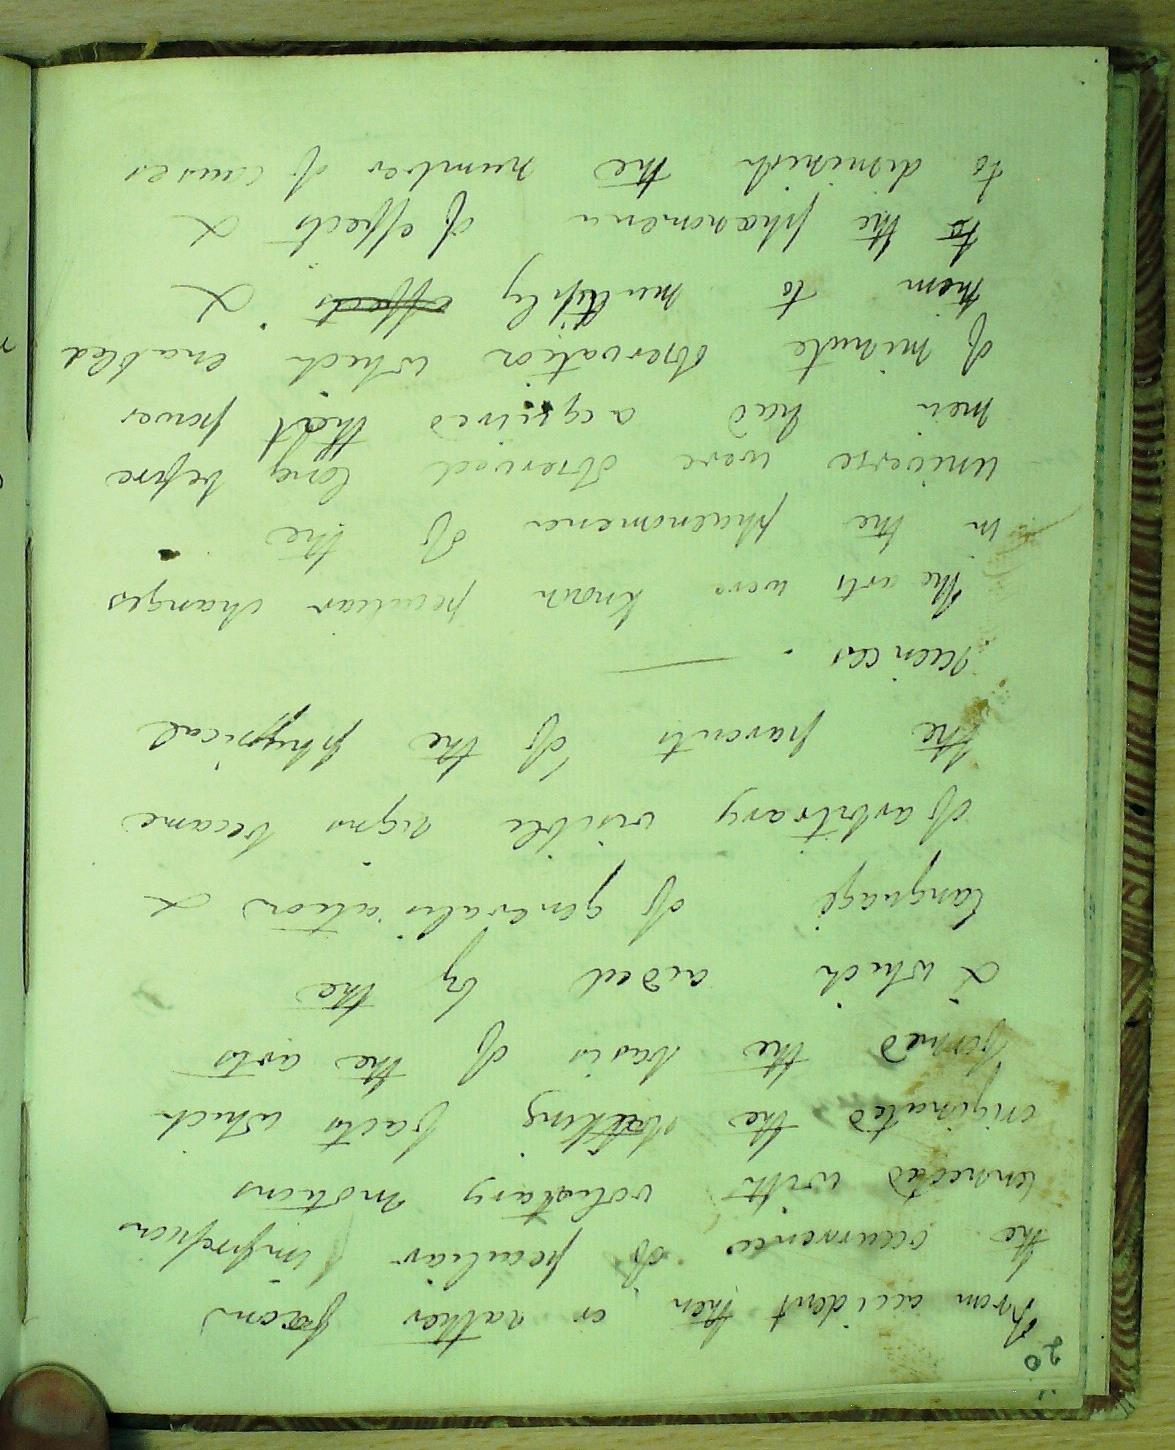 20
From accident then or rather from
the occurrence of peculiar impression
conected with volutary motions
originated the striking facts which
formed the basis of the arts
& which aided by the
language of generalisation &
of arbitrary visible signs became
the parents of the physical
sciences. —
The arts were known peculiar changes
in the phaenomena of the
universe were observed long before
men had aquired that power
of minute observation which enabled
them to multiply effects . &
to the phænomena of effects &
to diminish the number of causes